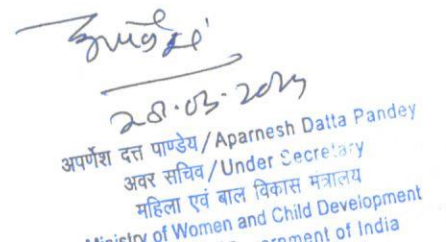 अपर्णेश दत्त पाण्डेय / Aparnesh Datta Pandey
अवर सचिव / Under Secretary
महिला एवं बाल विकास मंत्रालय
Ministry of Women and Child Development
Government of India